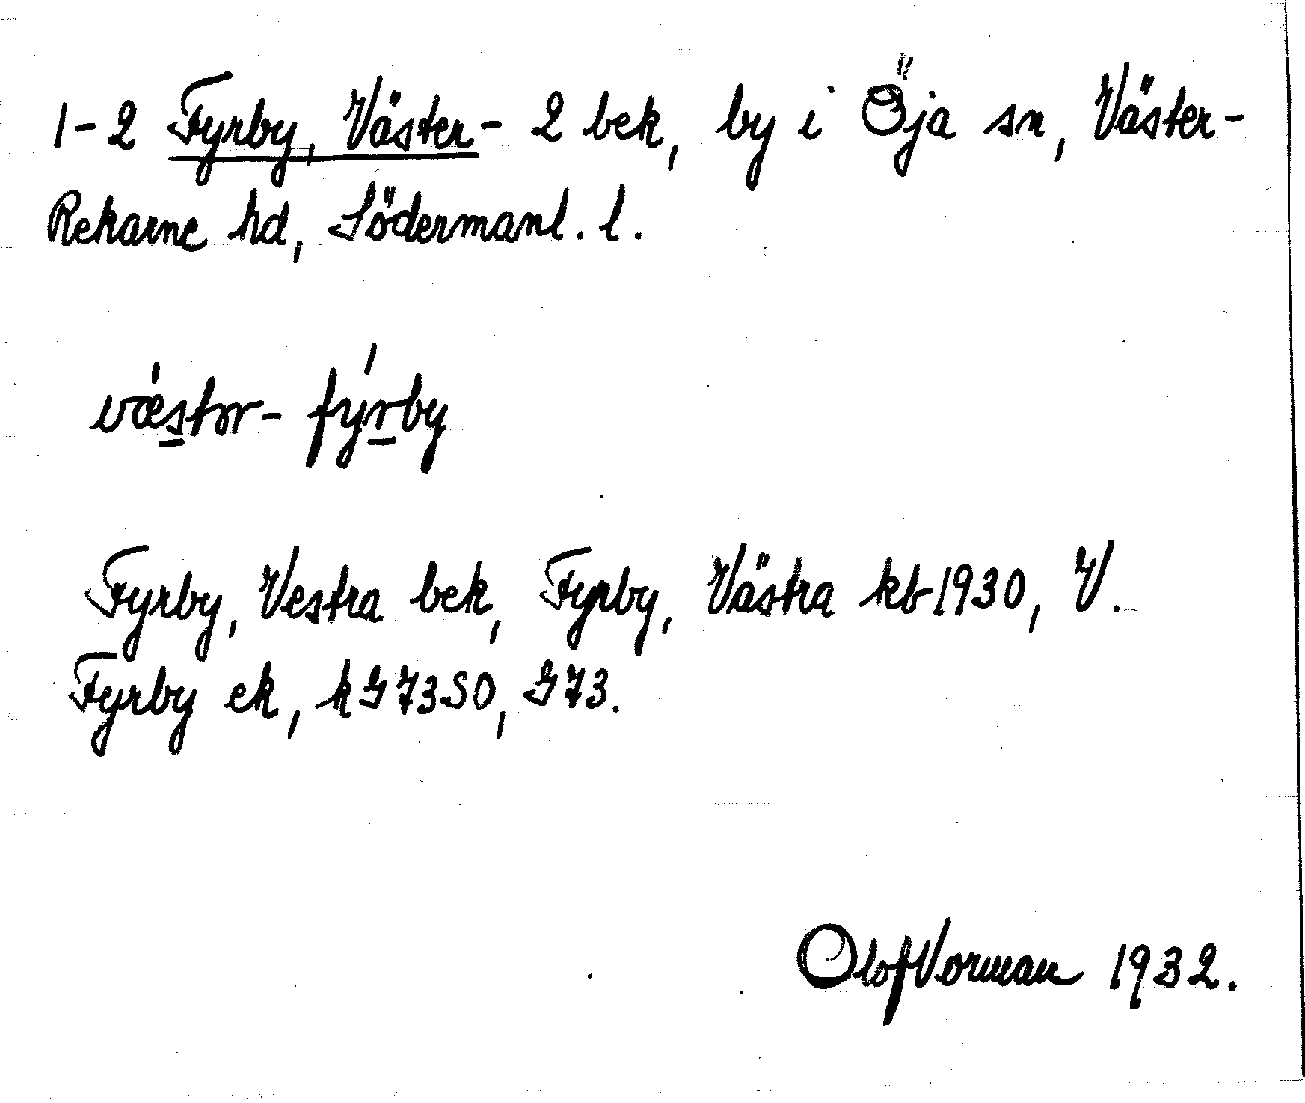 1-2 Fyrby, Väster- 2 bek, by i Öja sn, Väster-
Rekarne hd, Södermanl. l.
vǽstər- fýrby
Fyrby, Vestra bek, Fyrby, Västra kb 1930, V.
Fyrby ek, k G 73 SO, G 73.
Olof Vorman 1932.